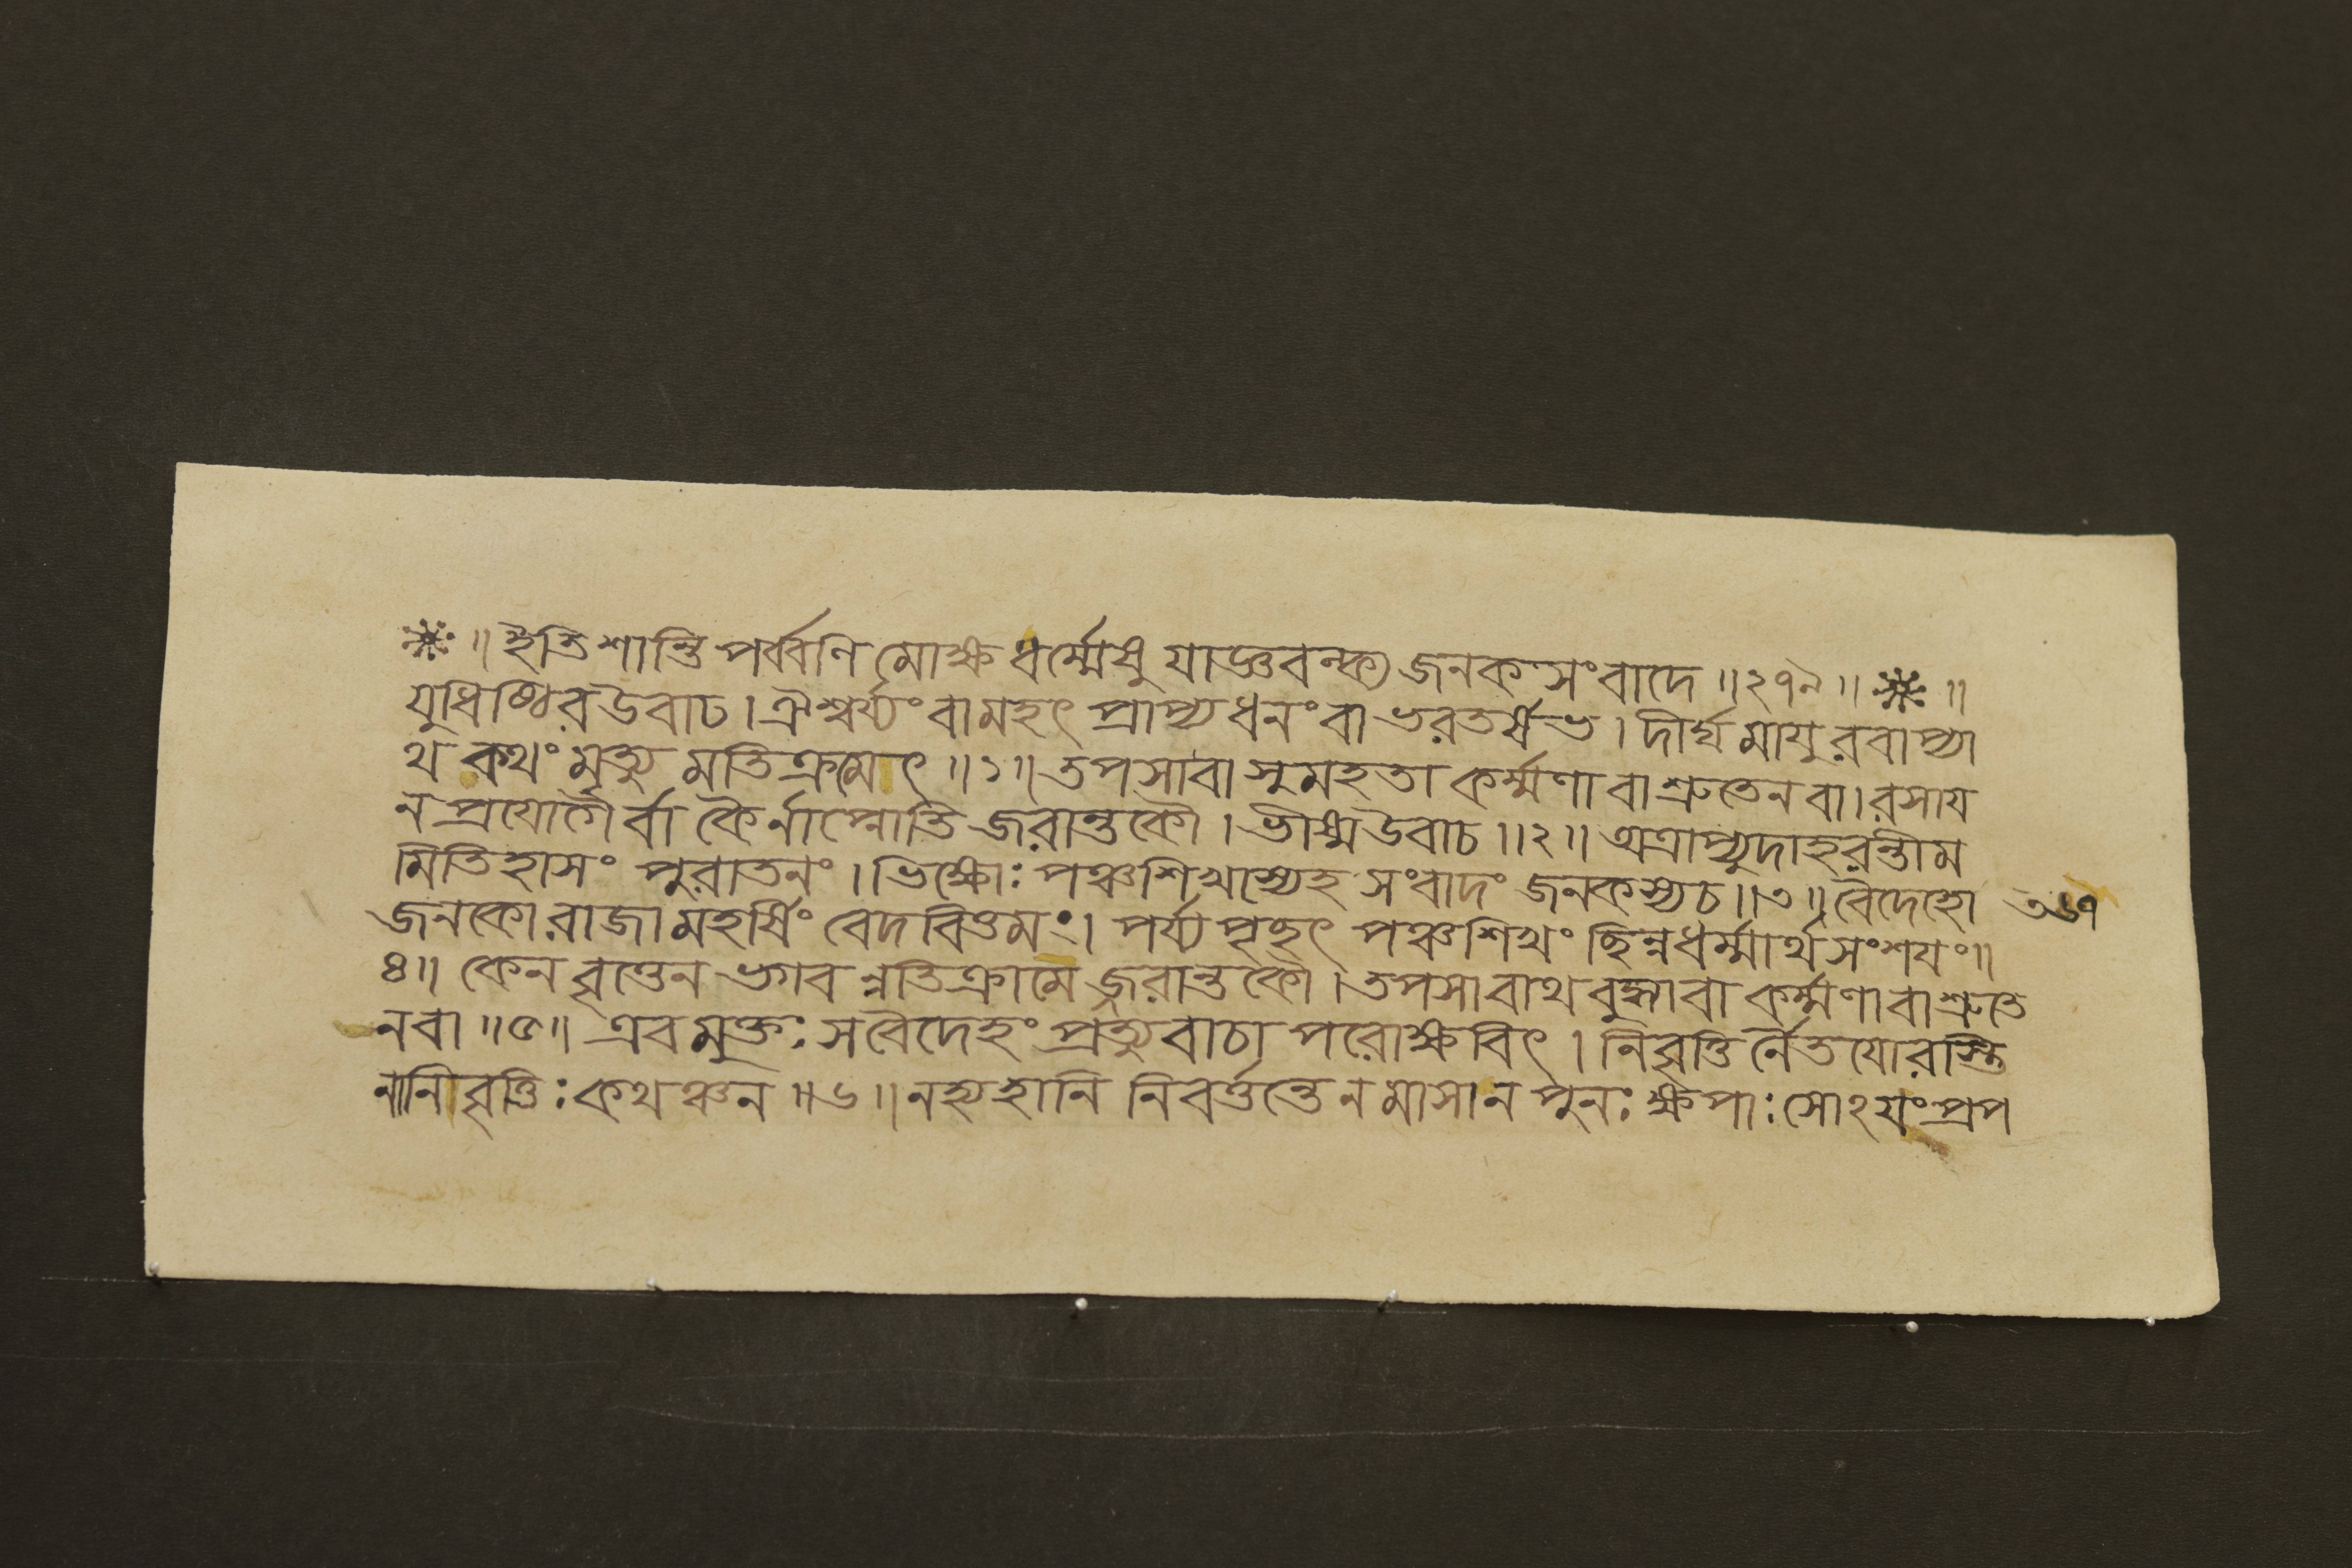 ॥ ইতি শান্তি পর্ব্বণি মোক্ষ ধর্ম্মেষু যাজ্ঞবল্ক্য জনক সংবাদে ॥ ২৭৯ ॥ ॥
যুধিষ্ঠির উবাচ । ঐশ্বর্য্যং বা মহৎ প্রাপ্য ধনং বা ভরতর্ষভ । দীর্ঘমায়ুরবাপ্যা
থ কথং মৃত্যু মতিক্রমেৎ ॥ ১ ॥ তপসা বা সুমহতা কর্ম্মণা বা শ্রুতেন বা । রসায
ন প্রযোগৈর্বা কৈর্নাপ্নোতি জরান্তকৌ । ভীষ্ম উবাচ ॥ ২ ॥ অত্রাপ্যুদাহরন্তীম
মিতিহাসং পুরাতনং । ভিক্ষোঃ পঞ্চশিখস্যেহ সংবাদং জনকস্য চ ॥ ৩ ॥ বৈদেহো
৩৬৭
জনকো রাজা মহর্ষিং বেদবিত্তমং । পর্য্য পৃছৎ পঞ্চশিখং ছিন্নধর্ম্মার্থ সংশযং ॥
৪ ॥ কেন বৃত্তেন ভগবন্নতিক্রামেজ্জরান্তকৌ । তপসা বাথ বুদ্ধ্যা বা কর্ম্মণা বা শ্রুতে
ন বা ॥ ৫ ॥ এবমুক্তঃ স বৈদেহং প্রত্যুবাচা পরোক্ষবিৎ । নিবৃত্তির্নৈতযোরস্তি
নানিবৃত্তিঃ কথঞ্চন ॥ ৬ ॥ নহ্যহানি নিবর্ত্তন্তে ন মাসা ন পুনঃ ক্ষপাঃ সোঽযং প্রপ